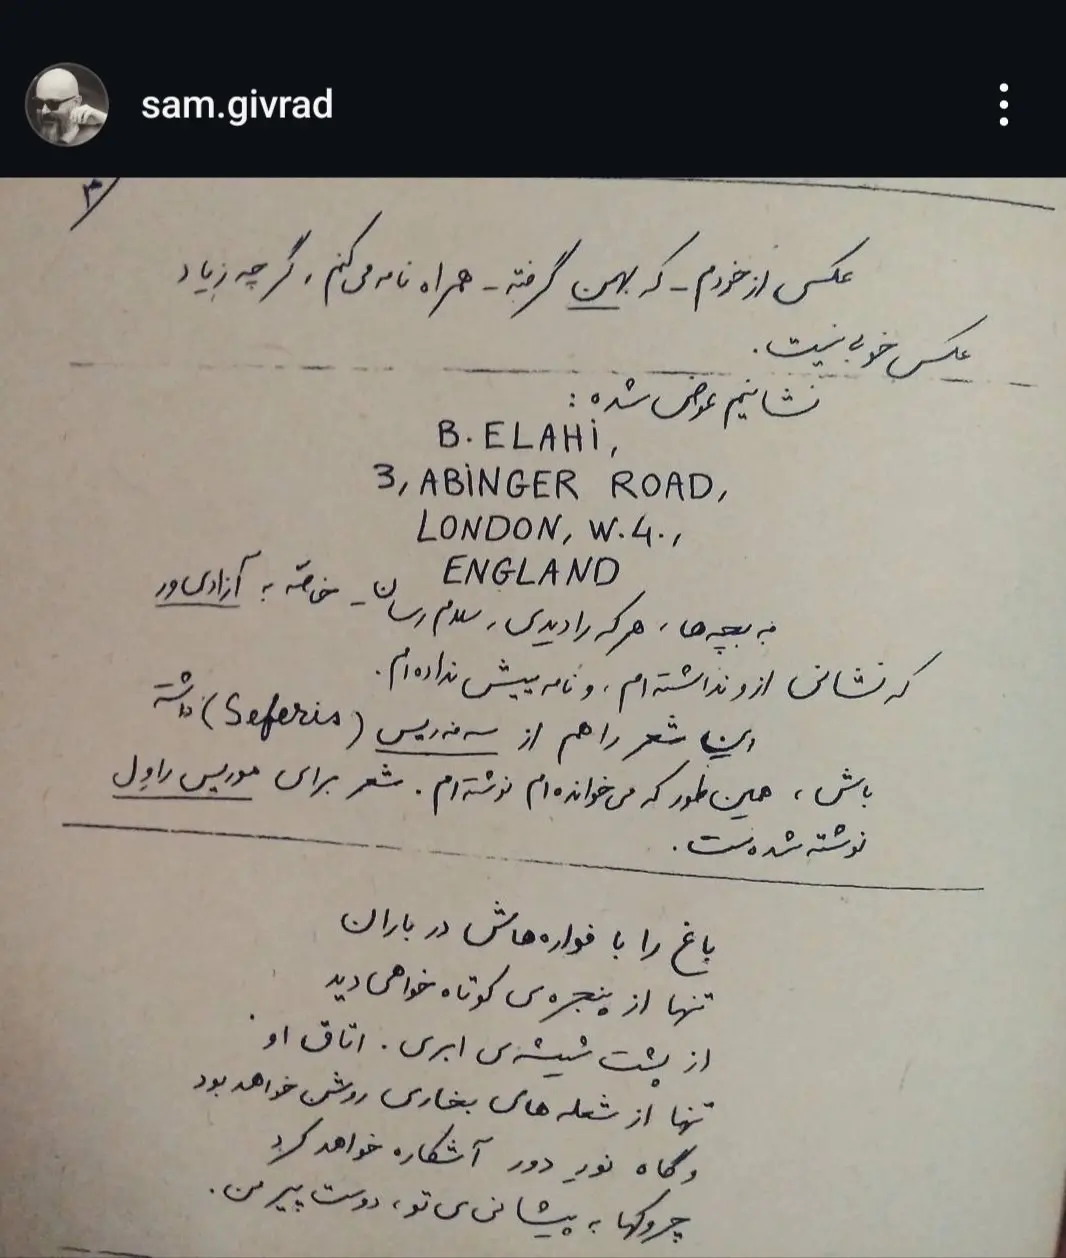 sam.givrad
۳
عکس از خودم - که بهمن گرفته - همراه نامه می‌کنم، گرچه زیاد
عکس خوبی نیست.
نشانیم عوض شده:
B. ELAHI,
3, ABINGER ROAD,
LONDON, W.4.,
ENGLAND
به بچه‌ها، هر که را دیدی، سلام رسان - خاصّه به آزادی‌ور
که نشانی ازو نداشته‌ام، و نامه پیش نداده‌ام.
این شعر را هم از سه‌فه‌ریس (Seferis) داشته
باش، همین‌طور که می‌خوانده‌ام نوشته‌ام. شعر برای موریس راول
نوشته شده‌ست.
باغ را با فواره‌هاش در باران
تنها از پنجره‌ی کوتاه خواهی دید
از پشت شیشه‌ی ابری. اتاق او
تنها از شعله‌های بخاری روشن خواهد بود
و گاه نور دور آشکاره خواهد کرد
چروکها به پیشانی‌ی تو، دوست پیر من.